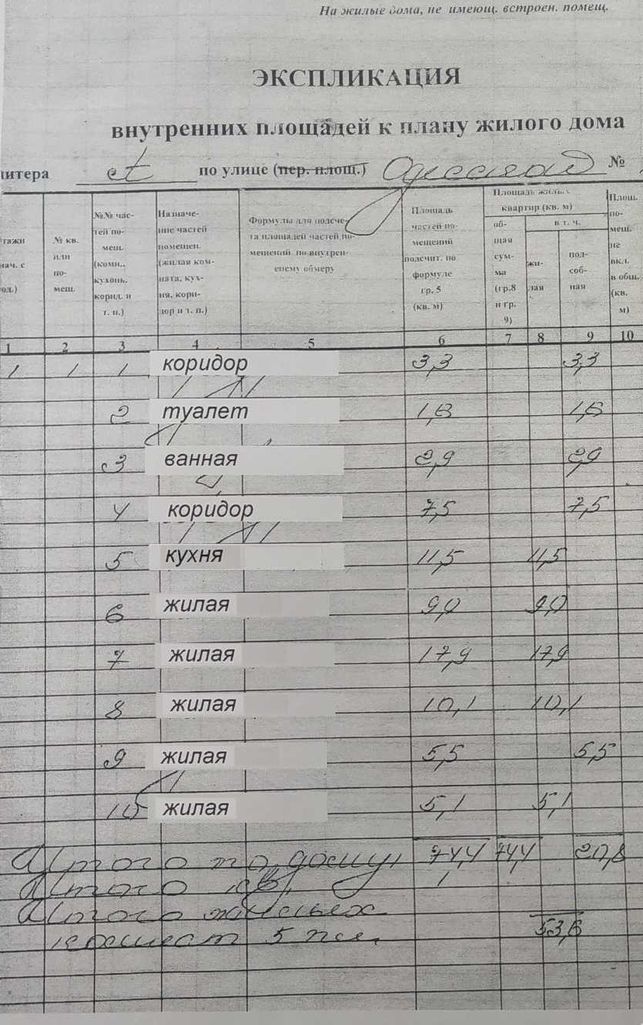 На жилые дома, не имеющ. встроен. помещ.
ЭКСПЛИКАЦИЯ
внутренних площадей к плану жилого дома
литера А по улице (пер. площ.) Одесская №
Этажи нач. с под.)
№ кв. или по- мещ.
№№ час- тей по- мещ. (комн., кухонь, корид. и т. п.)
Назначе- ние частей помещен. (жилая ком- ната, кух- ня, кори- дор и т. п.)
Формулы для подсче- та площадей частей по- мещений по внутрен- нему обмеру
Площадь частей по- мещений подсчит. по формуле гр. 5 (кв. м)
Площадь жилых квартир (кв. м)
об- щая сум- ма (гр.8 и гр. 9)
в т. ч.
жи- лая
под- соб- ная
Площ. по- мещ. не вкл. в общ. (кв. м)
1 2 3 4 5 6 7 8 9 10
1 1 1 коридор 3,3 3,3
2 туалет 1,8 1,8
3 ванная 2,9 2,9
4 коридор 7,5 7,5
5 кухня 11,5 11,5
6 жилая 9,0 9,0
7 жилая 17,9 17,9
8 жилая 10,1 10,1
9 жилая 5,5 5,5
10 жилая 5,1 5,1
Итого по дому 74,4 74,4 20,8
Итого кв. 1
Итого жилых
комнат 5 53,6